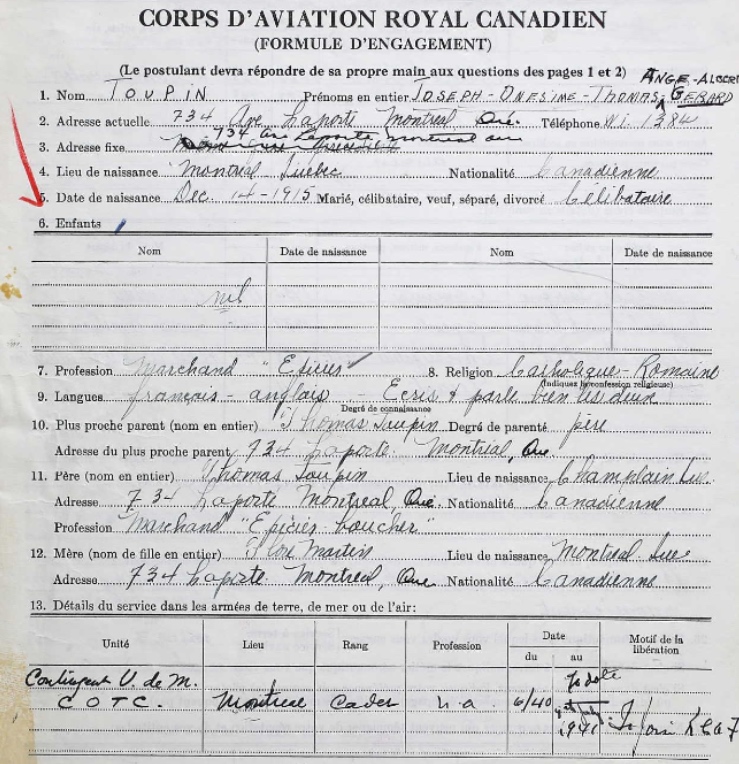 CORPS D'AVIATION ROYAL CANADIEN
(FORMULE D'ENGAGEMENT)
(Le postulant devra répondre de sa propre main aux questions des pages 1 et 2) ANGE-ALBERT
1. Nom TOUPIN Prénoms en entier JOSEPH-ONESIME-THOMAS-GERARD
2. Adresse actuelle 734 Ave Laporte Montreal Que. Téléphone WI. 1384
734 Ave Laporte, Montreal
3. Adresse fixe
4. Lieu de naissance Montréal Québec Nationalité Canadienne
5. Date de naissance Dec. 14-1915 Marié, célibataire, veuf, séparé, divorcé Célibataire
6. Enfants
Nom Date de naissance Nom Date de naissance
nil
7. Profession Marchand "Epicier" 8. Religion Catholique-Romaine
(Indiquez la confession religieuse)
9. Langues français - anglais - Ecris & parle bien les deux
Degré de connaissance
10. Plus proche parent (nom en entier) Thomas Toupin Degré de parenté père
Adresse du plus proche parent 734 Laporte. Montréal, Que.
11. Père (nom en entier) Thomas Toupin Lieu de naissance Champlain Que.
Adresse 734 Laporte Montreal Que. Nationalité Canadienne
Profession Marchand "Epicier-boucher"
12. Mère (nom de fille en entier) Martin Lieu de naissance Montreal Que
Adresse 734 Laporte. Montreal, Que Nationalité Canadienne
13. Détails du service dans les armées de terre, de mer ou de l'air:
Unité Lieu Rang Profession Date Motif de la libération
du au
Contingent U. de M. To date
C O T C. Montreal Cadet n.a. 6/40 1941 To join RCAF